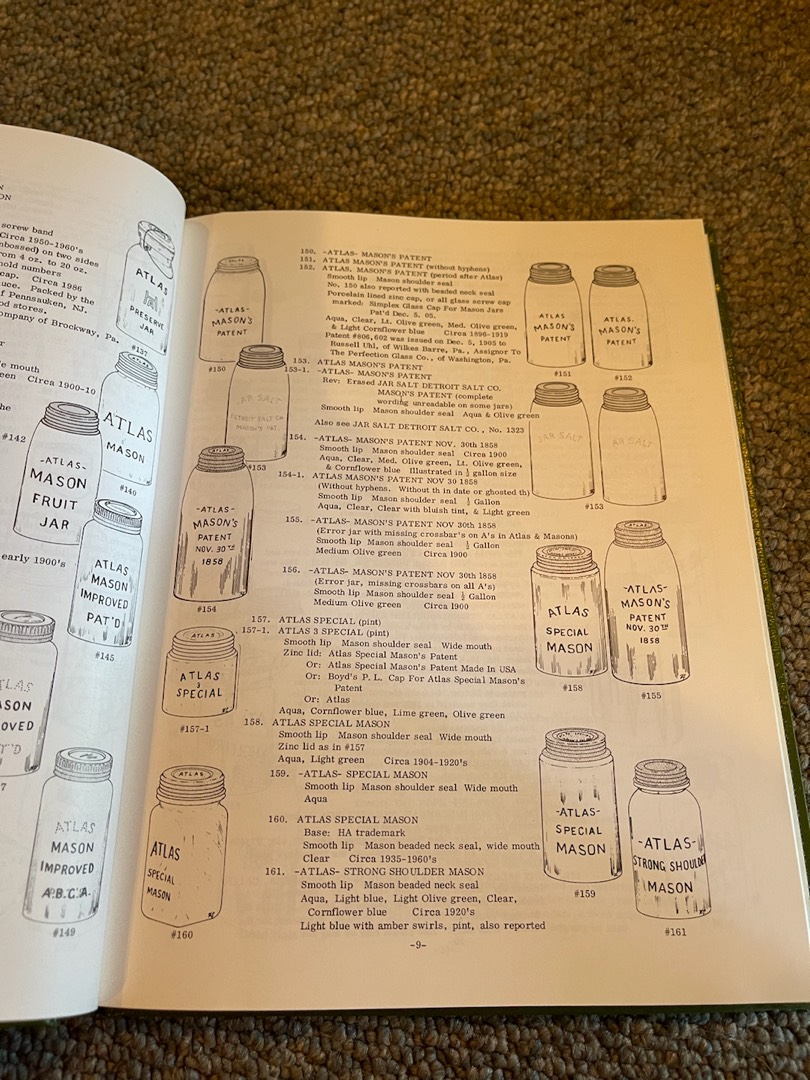 screw band
Circa 1950-1960's
on two sides
from 4 oz. to 20 oz.
mold numbers
cap. Circa 1986
Packed by the
of Pennsauken, NJ.
stores.
Company of Brockway, Pa.
mouth
Circa 1900-10
the
early 1900's
ATLAS
PRESERVE
JAR
#137
ATLAS
MASON
#140
#142
-ATLAS-
MASON
FRUIT
JAR
ATLAS
MASON
IMPROVED
PAT'D
#145
ATLAS
MASON
IMPROVED
A.B.G.A.
#149
-ATLAS-
MASON'S
PATENT
#150
150. -ATLAS- MASON'S PATENT
151. ATLAS MASON'S PATENT (without hyphens)
152. ATLAS. MASON'S PATENT (period after Atlas)
Smooth lip Mason shoulder seal
No. 150 also reported with beaded neck seal
Porcelain lined zinc cap, or all glass screw cap
marked: Simplex Glass Cap For Mason Jars
Pat'd Dec. 5, 05.
Aqua, Clear, Lt. Olive green, Med. Olive green,
& Light Cornflower blue Circa 1896-1919
Patent #806,602 was issued on Dec. 5, 1905 to
Russell Uhl, of Wilkes Barre, Pa., Assignor To
The Perfection Glass Co., of Washington, Pa.
153. ATLAS MASON'S PATENT
153-1. -ATLAS- MASON'S PATENT
Rev: Erased JAR SALT DETROIT SALT CO.
MASON'S PATENT (complete
wording unreadable on some jars)
Smooth lip Mason shoulder seal Aqua & Olive green
Also see JAR SALT DETROIT SALT CO., No. 1323
154. -ATLAS- MASON'S PATENT NOV. 30th 1858
Smooth lip Mason shoulder seal Circa 1900
Aqua, Clear, Med. Olive green, Lt. Olive green,
& Cornflower blue Illustrated in ½ gallon size
154-1. ATLAS MASON'S PATENT NOV 30 1858
(Without hyphens. Without th in date or ghosted th)
Smooth lip Mason shoulder seal ½ Gallon
Aqua, Clear, Clear with bluish tint, & Light green
155. -ATLAS- MASON'S PATENT NOV 30th 1858
(Error jar with missing crossbar's on A's in Atlas & Masons)
Smooth lip Mason shoulder seal ½ Gallon
Medium Olive green Circa 1900
156. -ATLAS- MASON'S PATENT NOV 30th 1858
(Error jar, missing crossbars on all A's)
Smooth lip Mason shoulder seal ½ Gallon
Medium Olive green Circa 1900
157. ATLAS SPECIAL (pint)
157-1. ATLAS 3 SPECIAL (pint)
Smooth lip Mason shoulder seal Wide mouth
Zinc lid: Atlas Special Mason's Patent
Or: Atlas Special Mason's Patent Made In USA
Or: Boyd's P. L. Cap For Atlas Special Mason's
Patent
Or: Atlas
Aqua, Cornflower blue, Lime green, Olive green
158. ATLAS SPECIAL MASON
Smooth lip Mason shoulder seal Wide mouth
Zinc lid as in #157
Aqua, Light green Circa 1904-1920's
159. -ATLAS- SPECIAL MASON
Smooth lip Mason shoulder seal Wide mouth
Aqua
160. ATLAS SPECIAL MASON
Base: HA trademark
Smooth lip Mason beaded neck seal, wide mouth
Clear Circa 1935-1960's
161. -ATLAS- STRONG SHOULDER MASON
Smooth lip Mason beaded neck seal
Aqua, Light blue, Light Olive green, Clear,
Cornflower blue Circa 1920's
Light blue with amber swirls, pint, also reported
-9-
JAR SALT
DETROIT SALT CO
MASON'S PAT.
#153
-ATLAS-
MASON'S
PATENT
NOV. 30TH
1858
#154
ATLAS
ATLAS
3
SPECIAL
#157-1
ATLAS
ATLAS
SPECIAL
MASON
#160
ATLAS
MASON'S
PATENT
#151
ATLAS.
MASON'S
PATENT
#152
JAR SALT
JAR SALT
#153
ATLAS
SPECIAL
MASON
#158
-ATLAS-
MASON'S
PATENT
NOV. 30TH
1858
#155
-ATLAS-
SPECIAL
MASON
#159
-ATLAS-
STRONG SHOULDER
MASON
#161